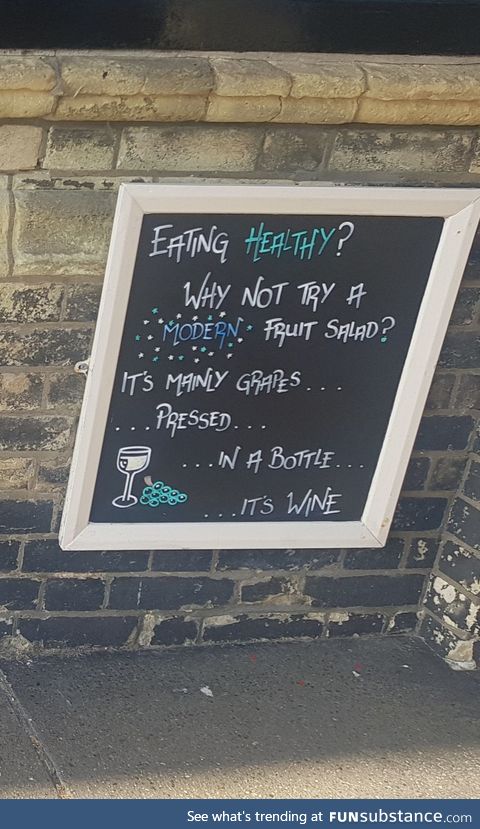 EATING HEALTHY?
WHY NOT TRY A
MODERN FRUIT SALAD?
IT'S MAINLY GRAPES...
...PRESSED...
...IN A BOTTLE...
...IT'S WINE
See what's trending at FUNsubstance.com